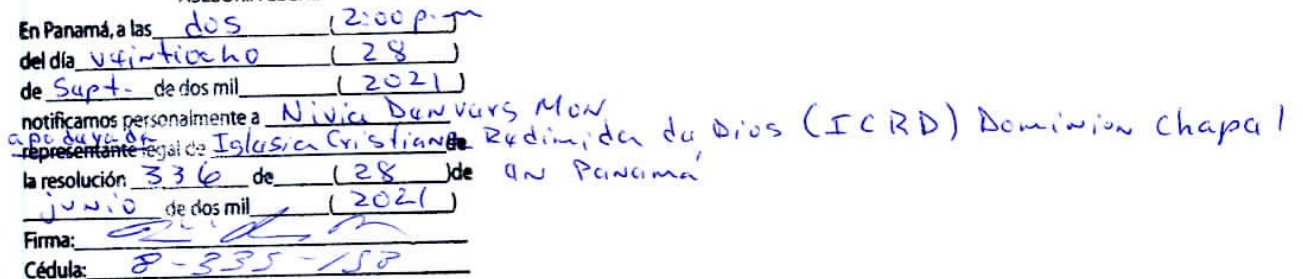 En Panamá, a las dos (2:00 p.m
del día veintiocho (28)
de Sept. de dos mil (2021)
notificamos personalmente a Nivia Danvers Mon
apoderada
representante legal de Iglesia Cristiana de Redimida de Dios (ICRD) Dominion Chapel
la resolución 336 de (28)de en Panamá
junio de dos mil (2021)
Firma:
Cédula: 8-335-153